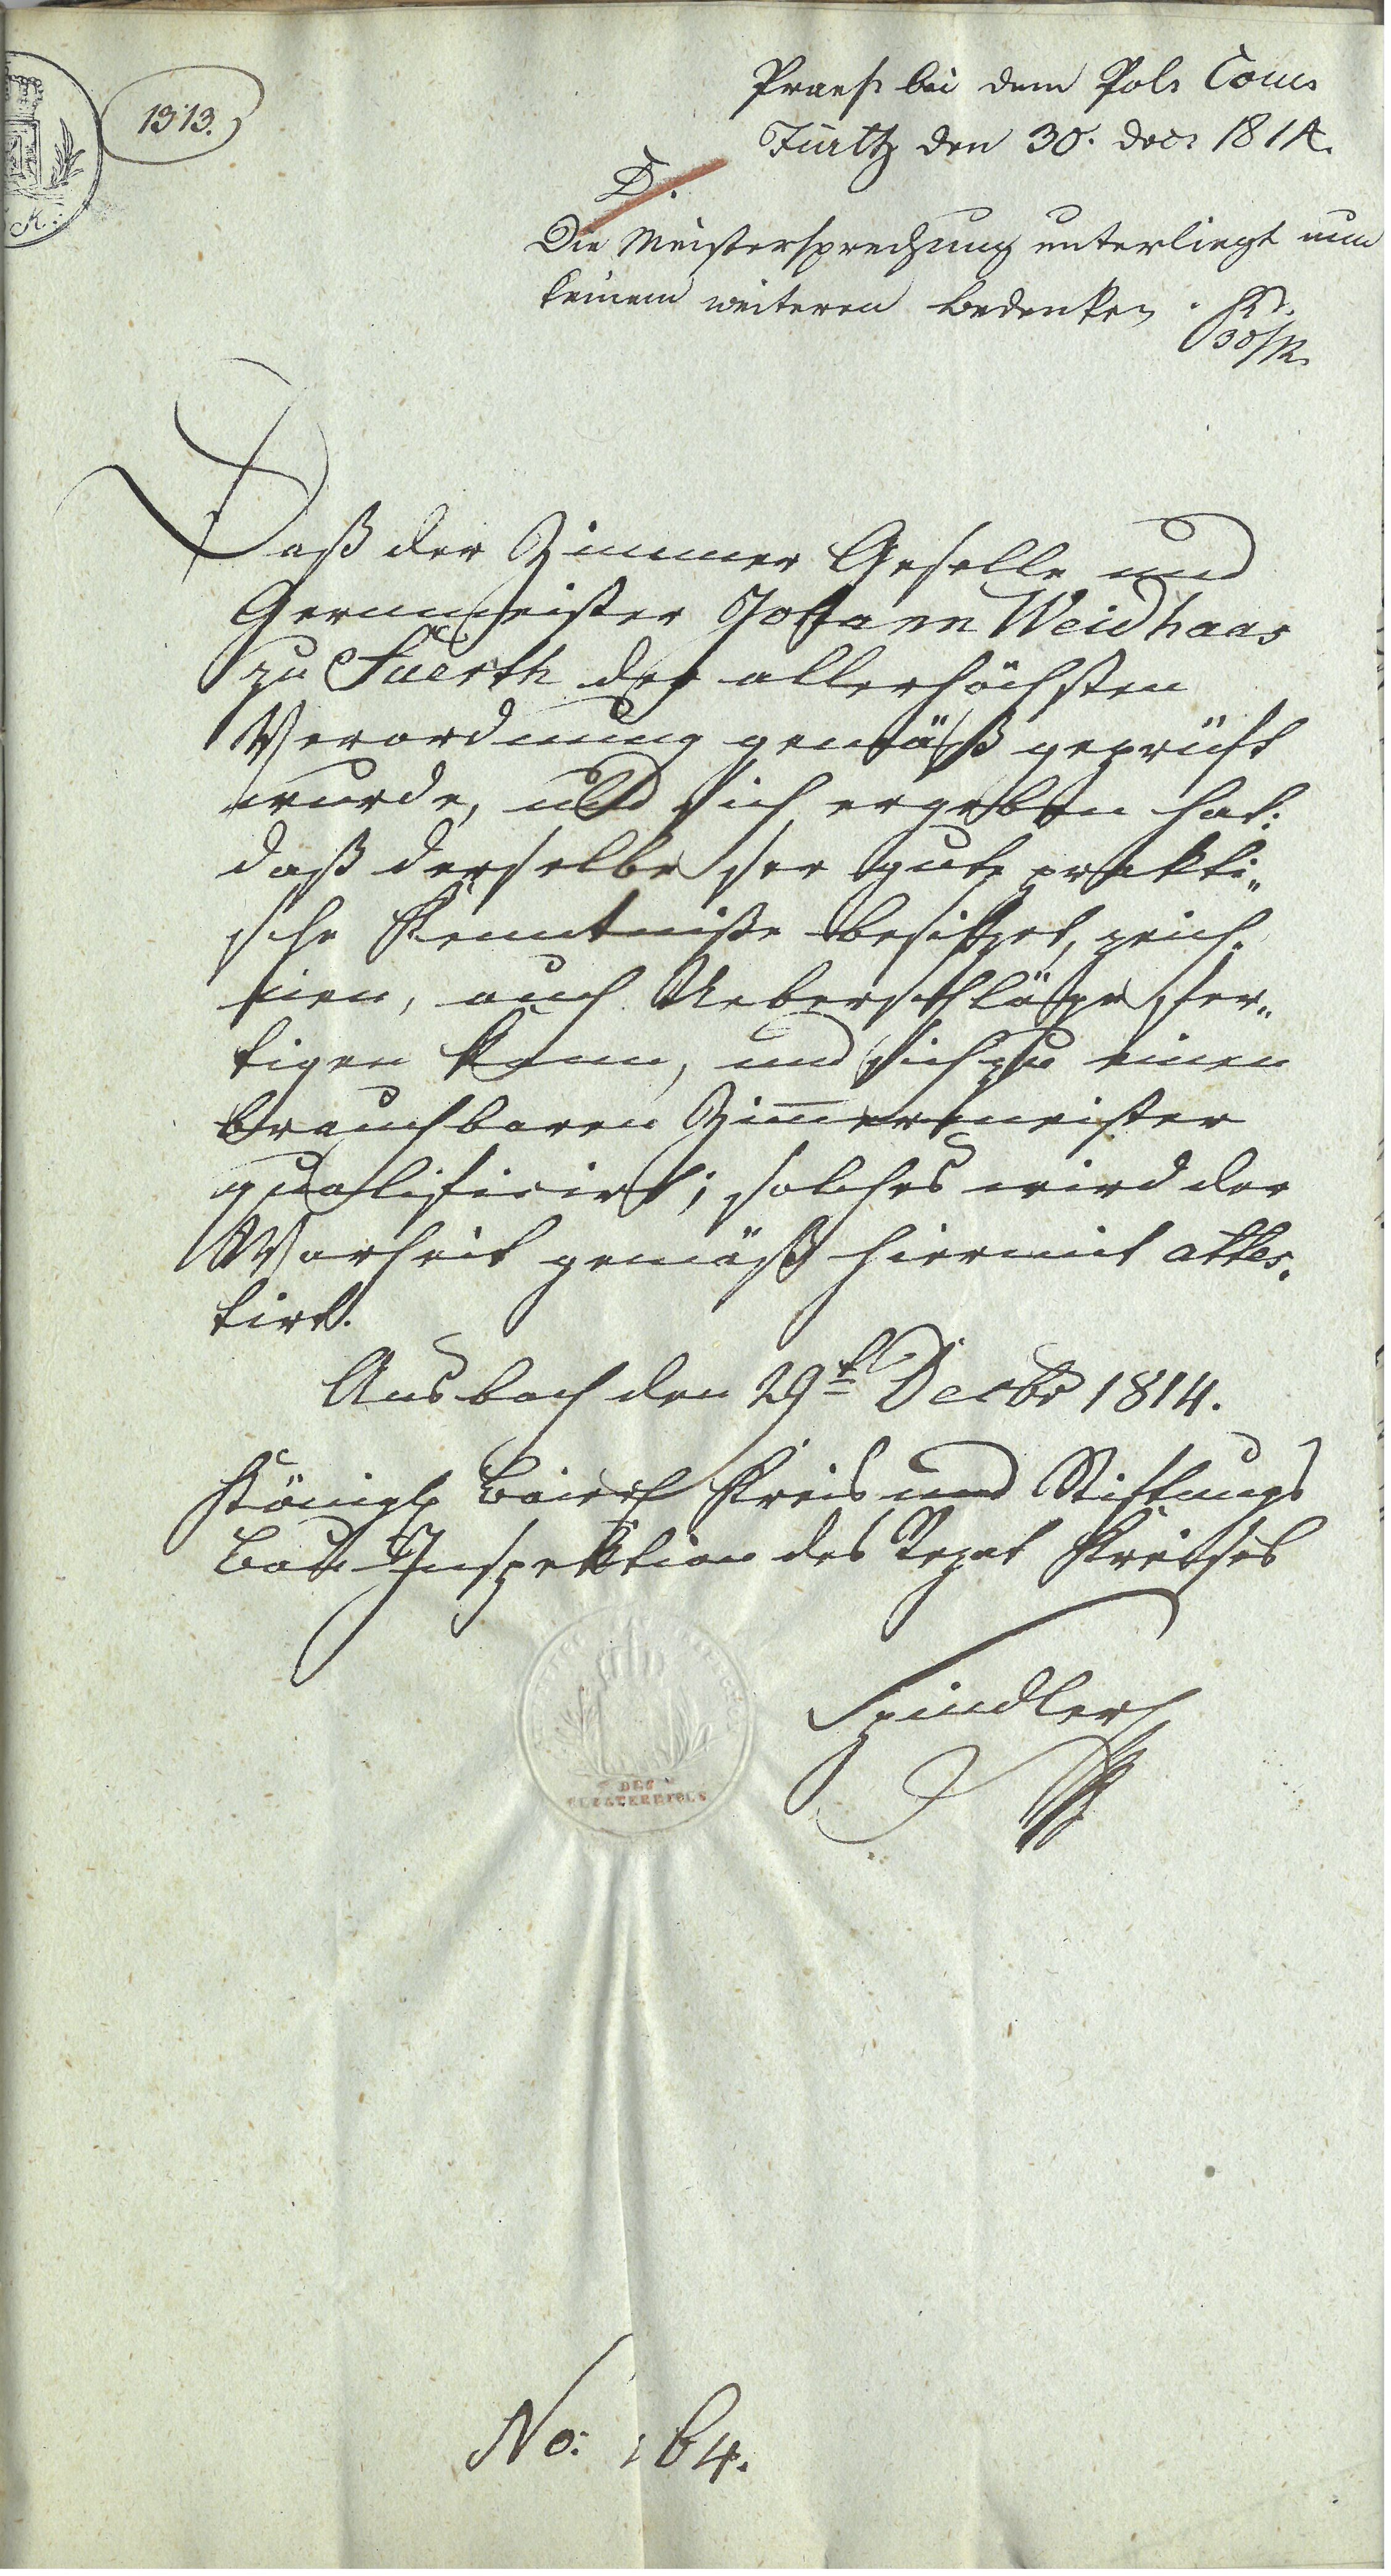 1313.
Praes. bei dem Pol. Com.
Fürth den 30. Dec. 1814.
D.
Die Meistersprechung unterliegt nun
keinem weiteren Bedenken.
30/12.
Daß der Zimmer Geselle und
Johann Weidhaas
zu Fuerth der allerhöchsten
Verordnung gemäß geprüft
wurde, und sich ergeben hat:
daß derselbe ser gute prakti„
sche Kenntniße besitzet, zeich„
nen, auch Ueberschläge fer„
tigen kann, und sich zu einen
brauchbaren Zimmermeister
qualificirt; solches wird der
Warheit gemäß hiermit attes„
tirt.
Ansbach den 29t Decbr 1814.
Königl. Baiersch Kreis und Stiftungs
Bau Inspektion des Rezat Kreises
Spindler
No: 164.